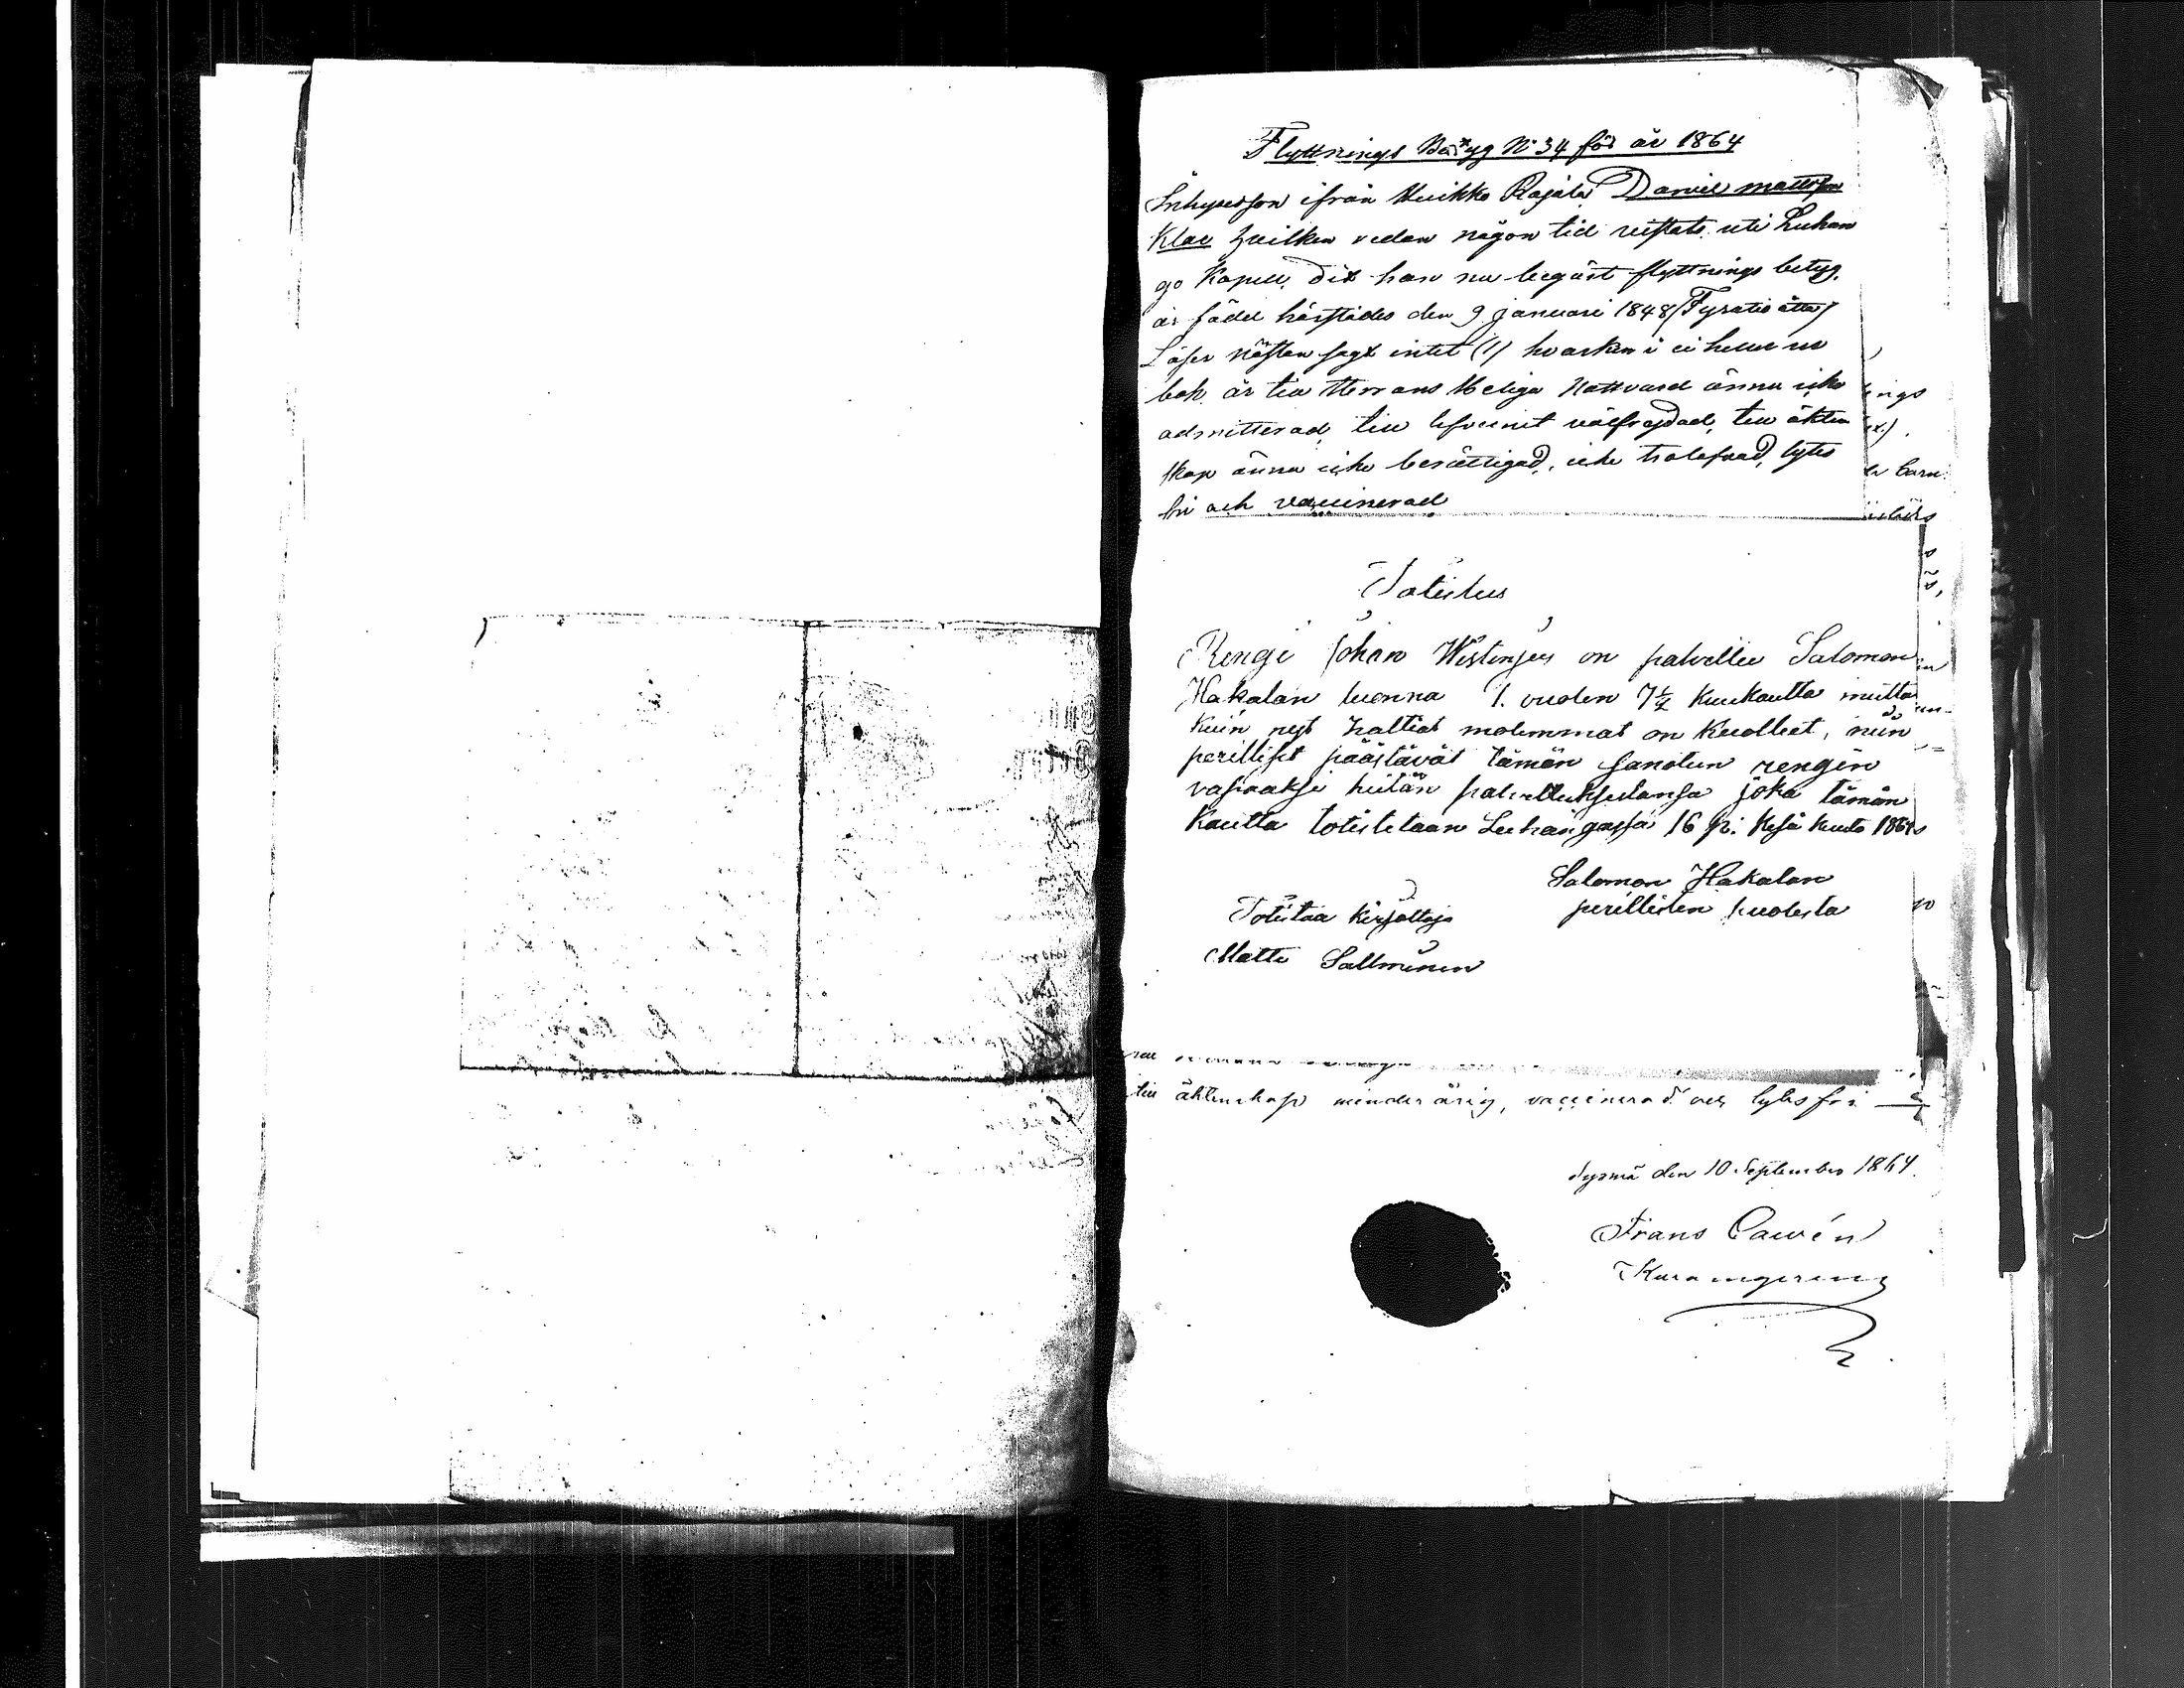 Flyttnings Betyg No 34 för år 1864
Inhyseson ifrån Huikko Rajala Daniel Mattsson
Klae hvilken redan någon tid vistats uti Luhan
go Kapell, dit han nu begärt flyttnings betyg,
är född härstädes den 9 januari 1848 (Fyratio åtta)
Läser nästan sagt intet (1) hvarken i eller ur
bok. är till Herrans Heliga Nattvard ännu icke
admitterad, till lefvernet välfrejdad, till äkten
skap ännu icke berättigad, icke trolofvad, lytes
fri och vaccinerad
ings
barn
Totistus
Rengi Johan Wistenjus on palvellu Salomon
Hakalan luonna 1. vuoden 7½ kuukautta mutta
kuin nyt haltiat molemmat on kuolleet, niin
perilliset päästävät tämän sanotun rengin
vapaaksi heitän palvelluksestansa joka tämän
kautta totistetaan Luhangassa 16 p: Kesä kuuta 1864
Salomon Hakalan
perillisten puolesta
Totistaa kirjottaja
Matti Sallminen
till äktenskap minderårig, vaccinerad och lytesfri
Sysmä den 10 September 1864.
Frans Cawén